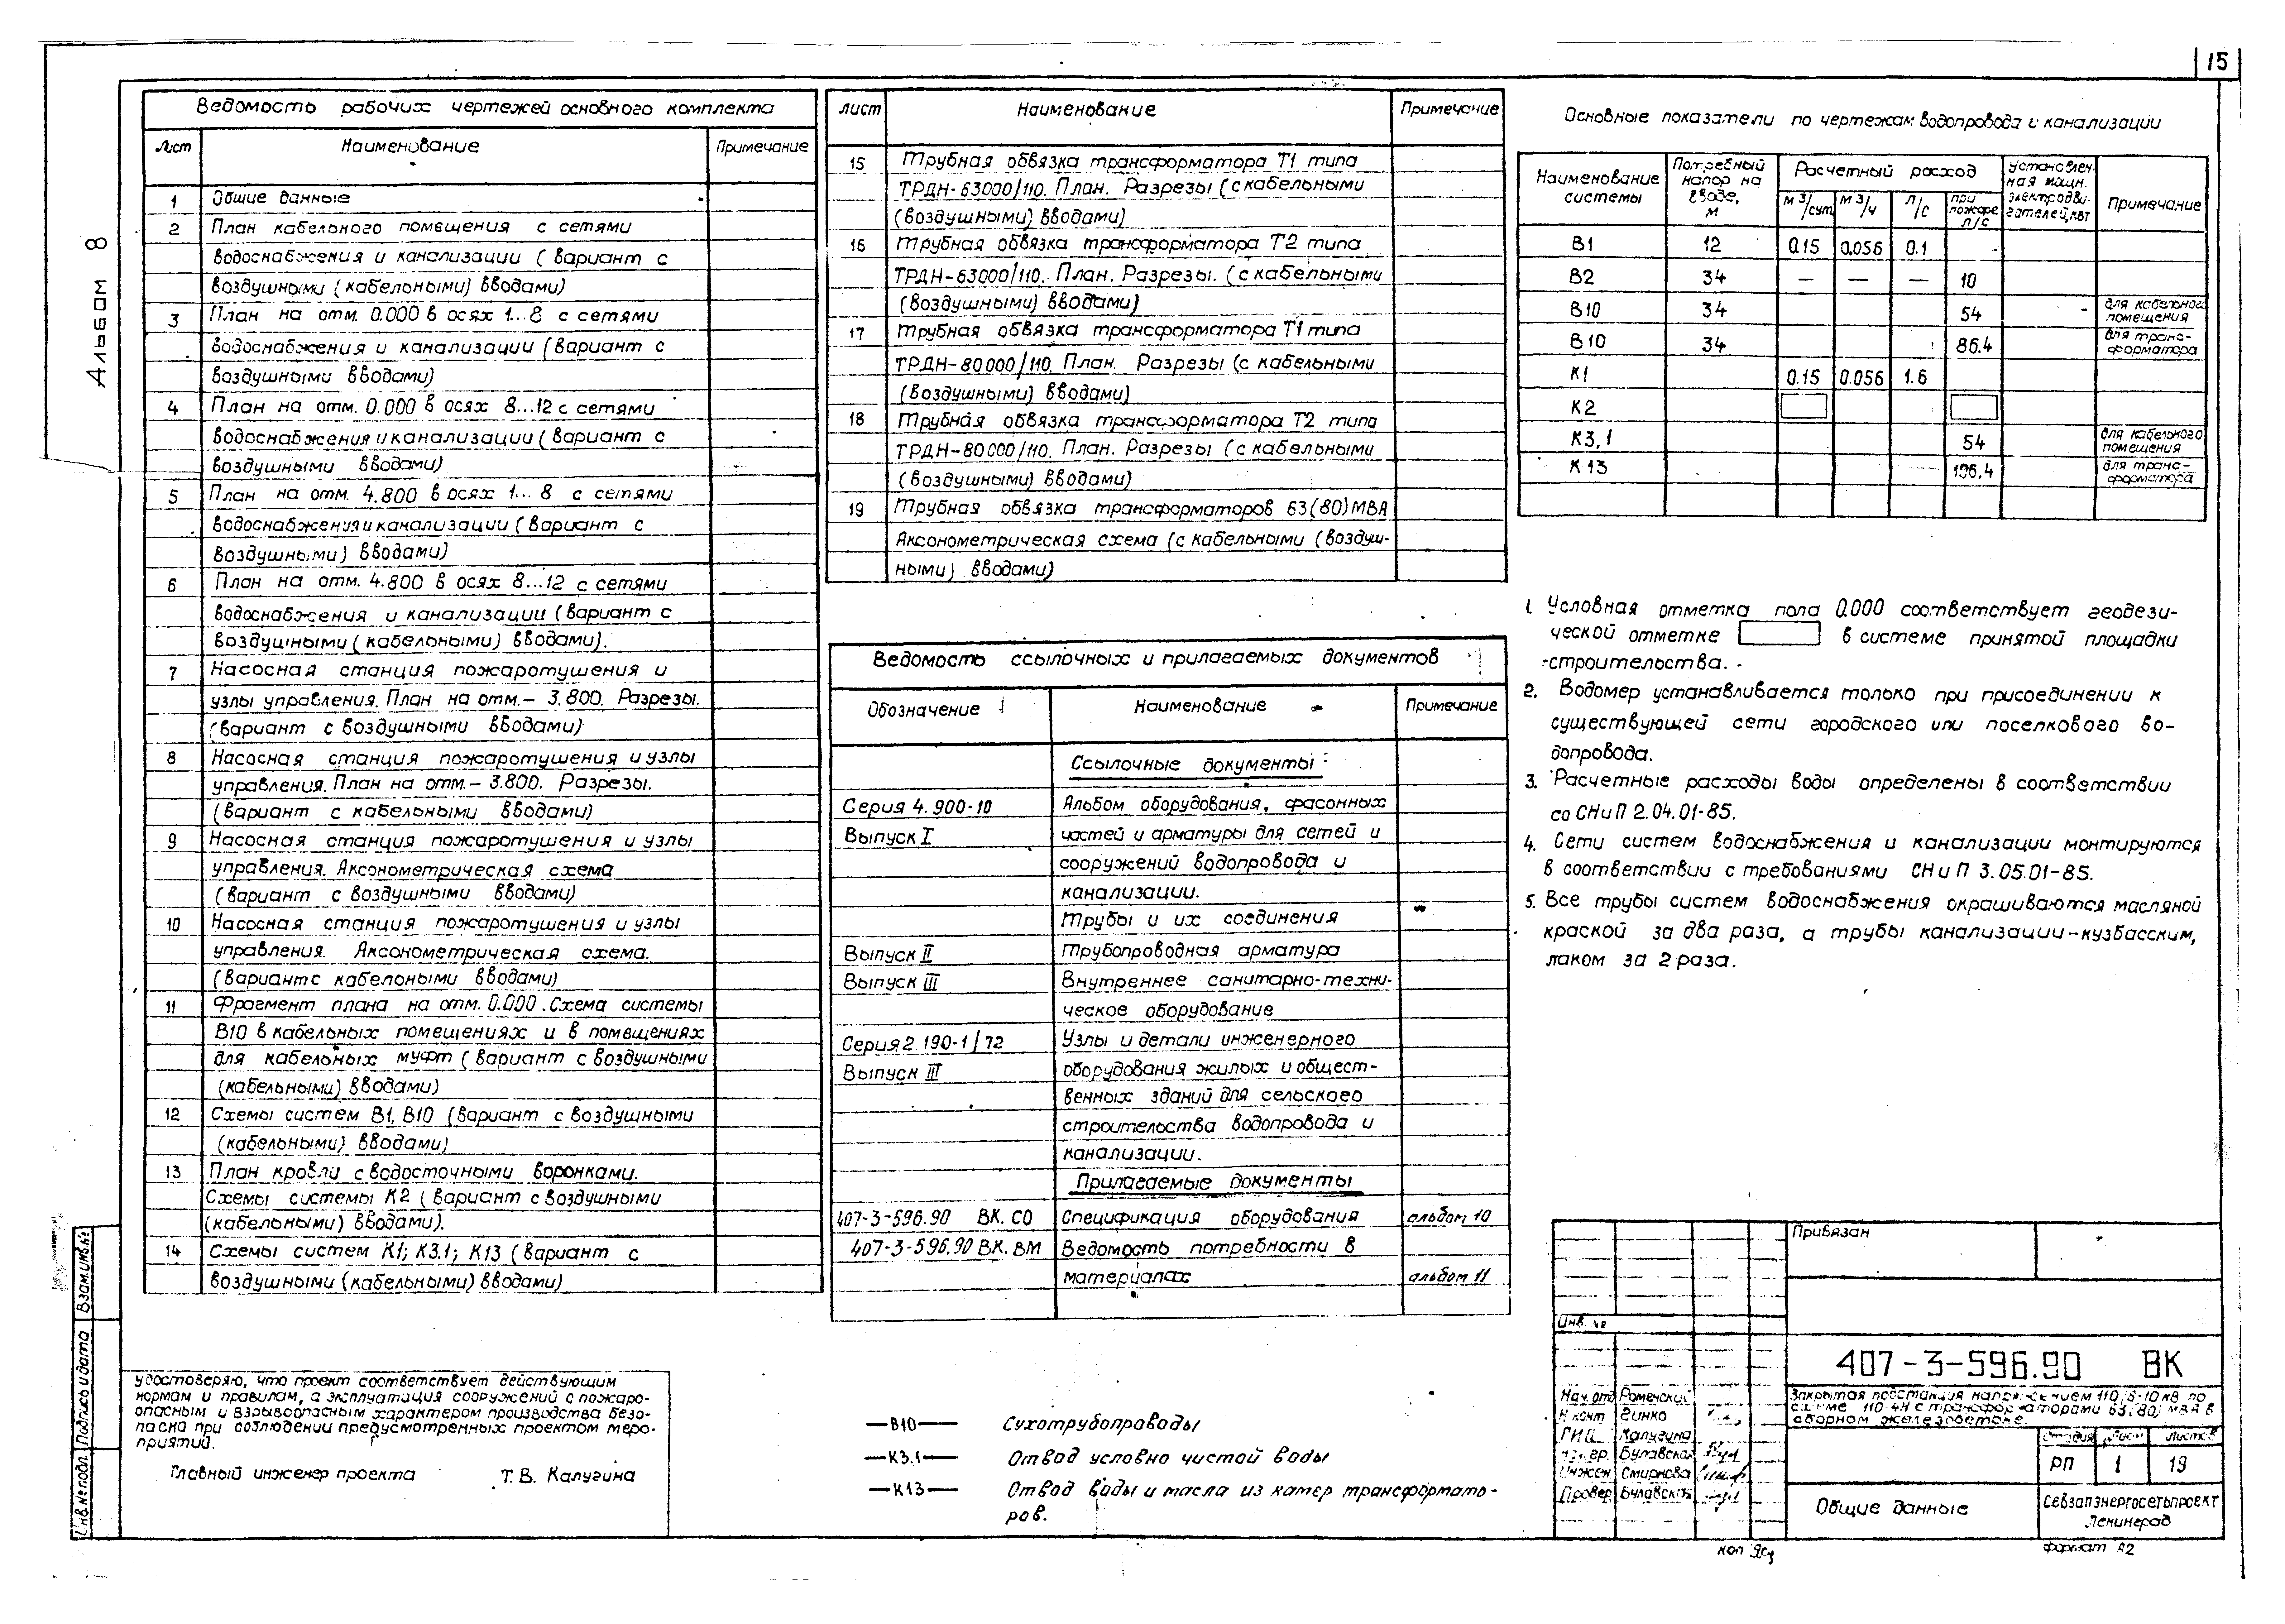 15
Альбом 8
Ведомость рабочих чертежей основного комплекта
Лист Наименование Примечание
1 Общие данные
2 План кабельного помещения с сетями
водоснабжения и канализации (вариант с
воздушными (кабельными) вводами)
3 План на отм. 0.000 в осях 1...8 с сетями
водоснабжения и канализации (вариант с
воздушными вводами)
4 План на отм. 0.000 в осях 8...12 с сетями
водоснабжения и канализации (вариант с
воздушными вводами)
5 План на отм. 4.800 в осях 1...8 с сетями
водоснабжения и канализации (вариант с
воздушными) вводами)
6 План на отм. 4.800 в осях 8...12 с сетями
водоснабжения и канализации (вариант с
воздушными (кабельными) вводами).
7 Насосная станция пожаротушения и
узлы управления. План на отм. - 3.800. Разрезы.
(вариант с воздушными вводами)
8 Насосная станция пожаротушения и узлы
управления. План на отм. - 3.800. Разрезы.
(вариант с кабельными вводами)
9 Насосная станция пожаротушения и узлы
управления. Аксонометрическая схема
(вариант с воздушными вводами)
10 Насосная станция пожаротушения и узлы
управления. Аксонометрическая схема.
(вариант с кабельными вводами)
11 Фрагмент плана на отм. 0.000. Схема системы
В10 в кабельных помещениях и в помещениях
для кабельных муфт (вариант с воздушными
(кабельными) вводами)
12 Схемы систем В1, В10 (вариант с воздушными
(кабельными) вводами)
13 План кровли с водосточными воронками.
Схемы системы К2 (вариант с воздушными
(кабельными) вводами).
14 Схемы систем К1; К3.1; К13 (вариант с
воздушными (кабельными) вводами)
лист Наименование Примечание
15 Трубная обвязка трансформатора Т1 типа
ТРДН-63000/110. План. Разрезы (с кабельными
(воздушными) вводами)
16 Трубная обвязка трансформатора Т2 типа
ТРДН-63000/110. План. Разрезы. (с кабельными
(воздушными) вводами)
17 Трубная обвязка трансформатора Т1 типа
ТРДН-80000/110. План. Разрезы (с кабельными
(воздушными) вводами)
18 Трубная обвязка трансформатора Т2 типа
ТРДН-80000/110. План. Разрезы (с кабельными
(воздушными) вводами)
19 Трубная обвязка трансформаторов 63(80)МВА
Аксонометрическая схема (с кабельными (воздуш-
ными) вводами)
Ведомость ссылочных и прилагаемых документов
Обозначение Наименование Примечание
Ссылочные документы
Серия 4.900-10 Альбом оборудования, фасонных
Выпуск I частей и арматуры для сетей и
сооружений водопровода и
канализации.
Трубы и их соединения
Выпуск II Трубопроводная арматура
Выпуск III Внутреннее санитарно-техни-
ческое оборудование
Серия 2.190-1/72 Узлы и детали инженерного
Выпуск III оборудования жилых и общест-
венных зданий для сельского
строительства водопровода и
канализации.
Прилагаемые документы
407-3-596.90 ВК. СО Спецификация оборудования альбом 10
407-3-596.90 ВК. ВМ Ведомость потребности в
материалах альбом 11
Основные показатели по чертежам водопровода и канализации
Наименование системы Потребный напор на вводе, м Расчетный расход Установлен-ная мощн. электродви-гателей, квт Примечание
м3/сут м3/ч л/с при пожаре л/с
В1 12 0.15 0.056 0.1
В2 34 — — — 10
В10 34 54 для кабельного помещения
В10 34 86.4 для транс-форматора
К1 0.15 0.056 1.6
К2
К3,1 54 для кабельного помещения
К13 136.4 для транс-форматора
1. Условная отметка пола 0.000 соответствует геодези-
ческой отметке в системе принятой площадки
строительства.
2. Водомер устанавливается только при присоединении к
существующей сети городского или поселкового во-
допровода.
3. Расчетные расходы воды определены в соответствии
со СНиП 2.04.01-85.
4. Сети систем водоснабжения и канализации монтируются
в соответствии с требованиями СНиП 3.05.01-85.
5. Все трубы систем водоснабжения окрашиваются масляной
краской за два раза, а трубы канализации-кузбасским,
лаком за 2 раза.
удостоверяю, что проект соответствует действующим
нормам и правилам, а эксплуатация сооружений с пожаро-
опасным и взрывоопасным характером производства безо-
пасна при соблюдении предусмотренных проектом меро-
приятий.
Главный инженер проекта Т. В. Калугина
—В10— Сухотрубопроводы
—К3.1— Отвод условно чистой воды
—К13— Отвод воды и масла из камер трансформато-
ров.
Инв. № подл. Подпись и дата Взам. инв. №
Привязан
Инв. №
407-3-596.90 ВК
Нач. отд Роменский
Н. конт Гинко
ГИП Калугина
Нач. гр. Булавская
Инжен Смирнова
Провер Булавская
Закрытая подстанция напряжением 110/6-10 кв по
схеме 110-4Н с трансформаторами 63(80) МВА в
сборном железобетоне.
Стадия Лист Листов
РП 1 19
Общие данные
Севзапэнергосетьпроект
Ленинград
кол
формат А2